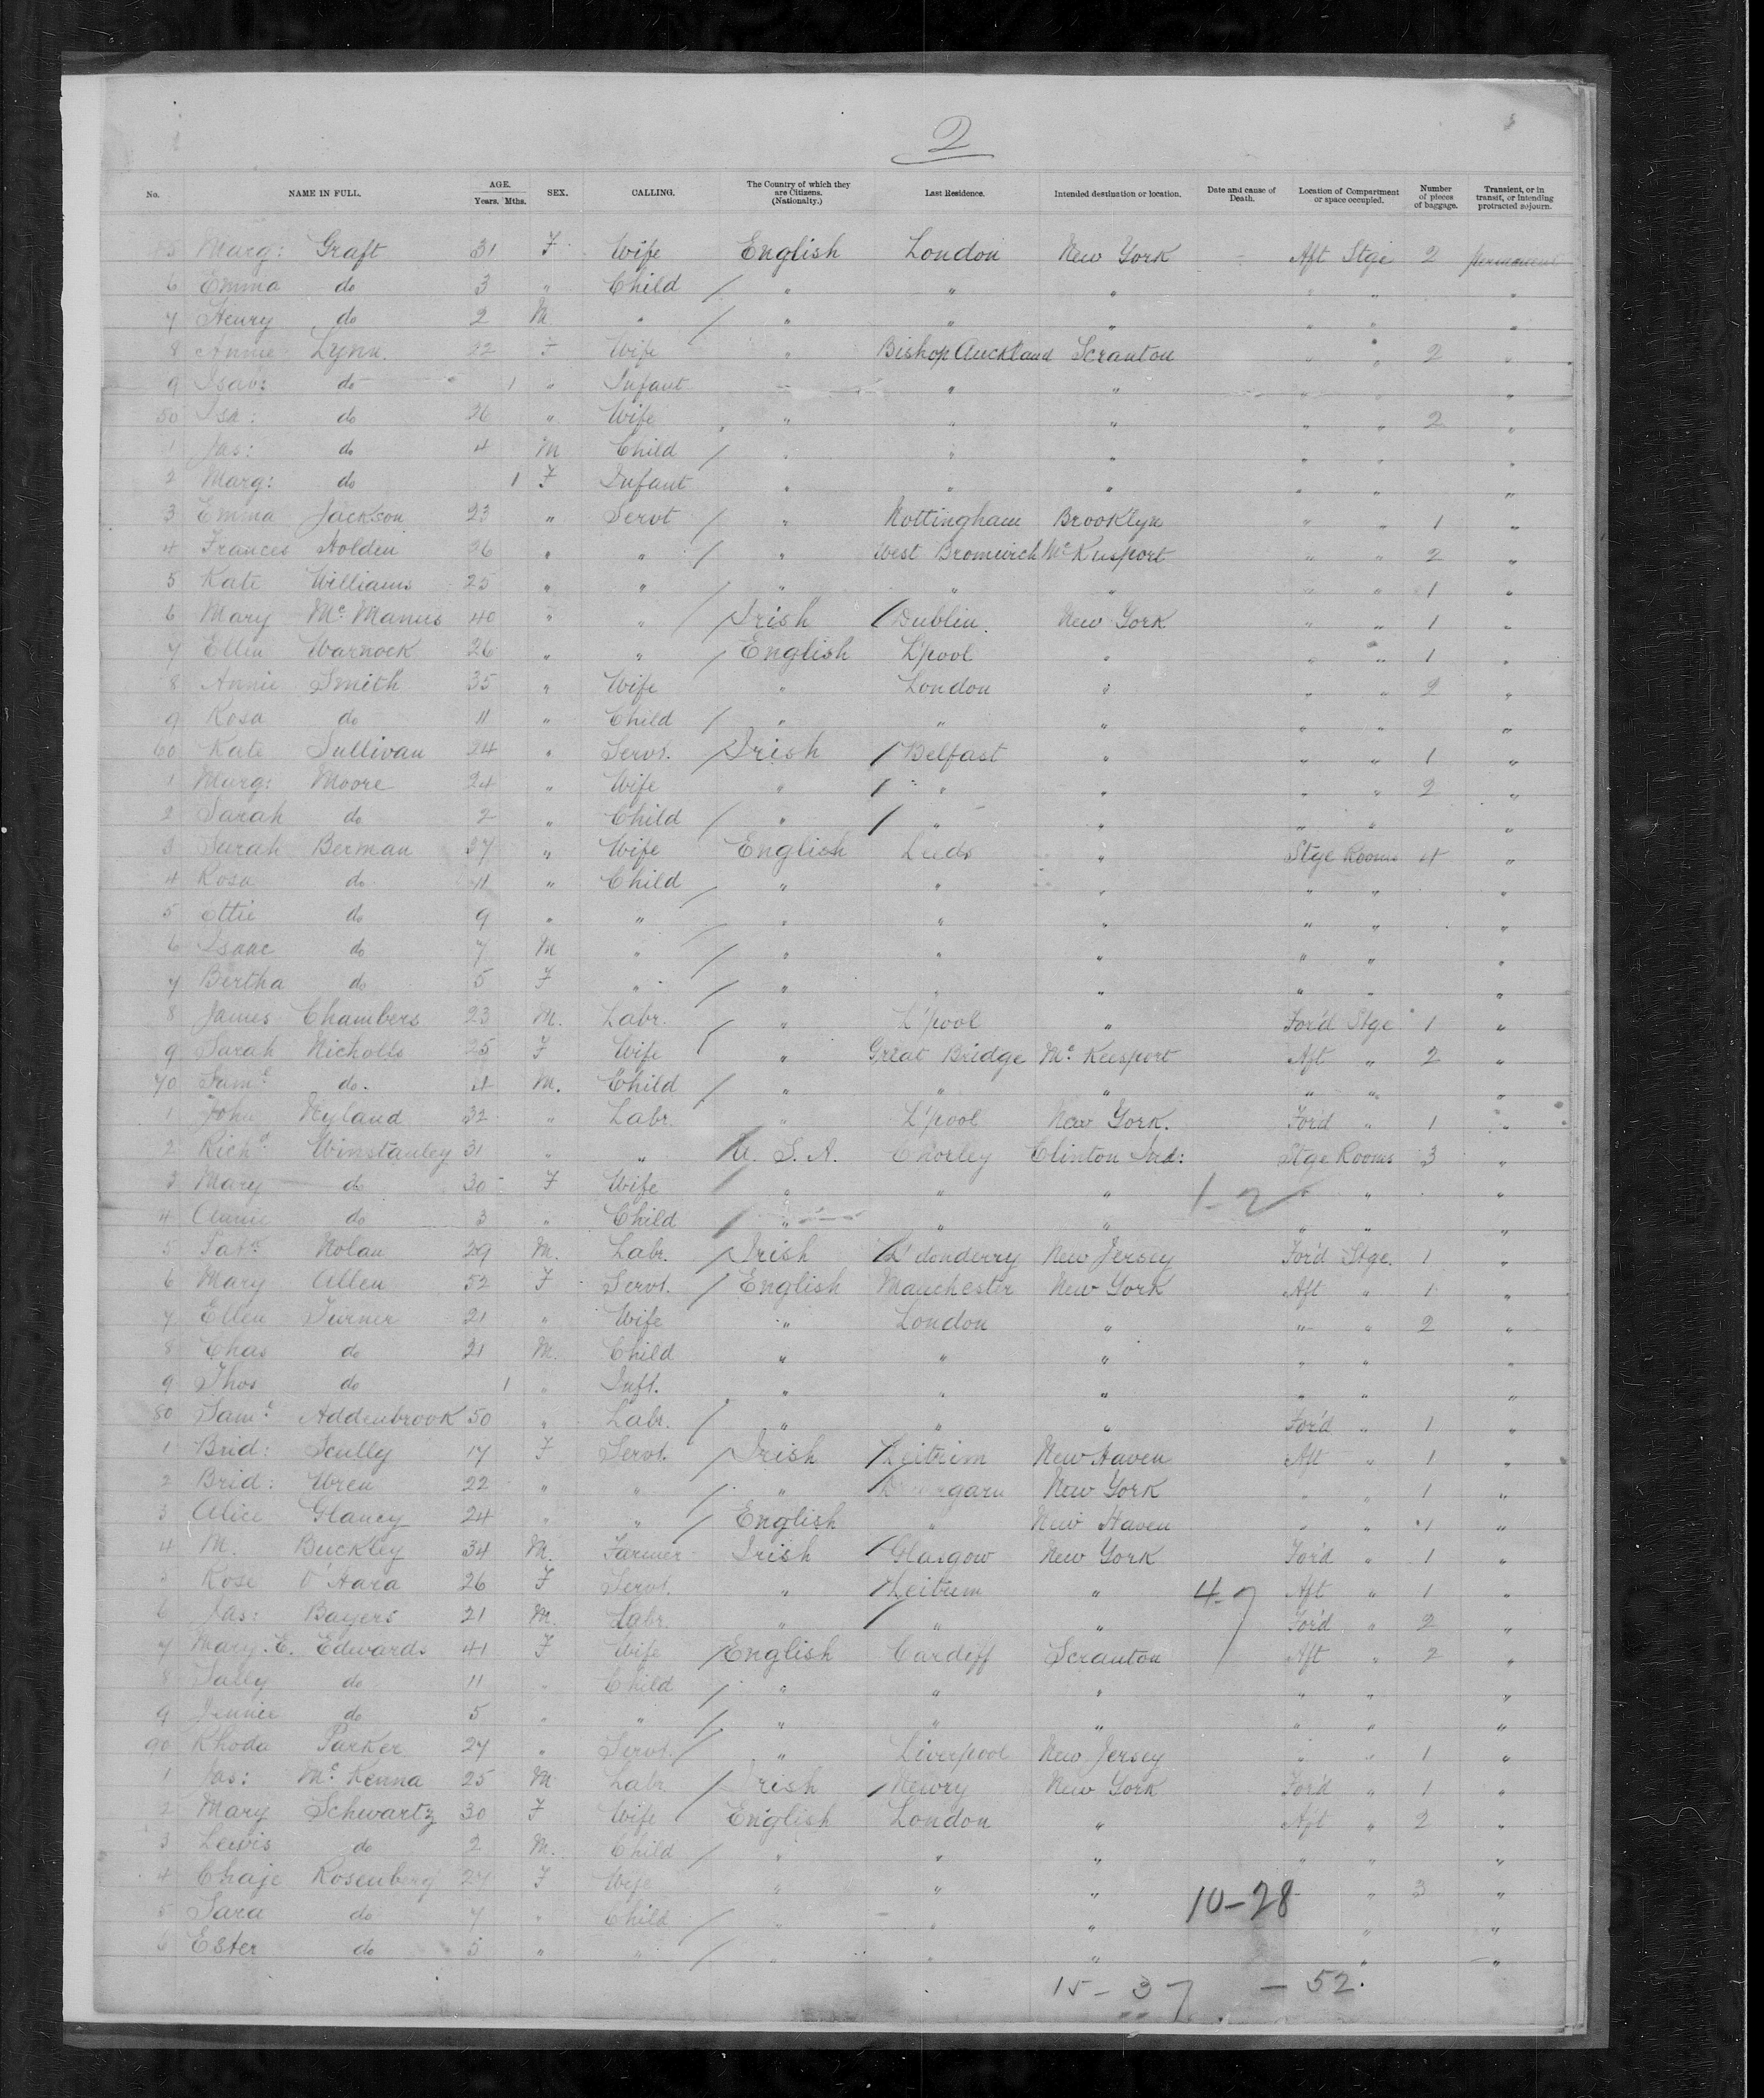 2
No. NAME IN FULL. AGE. Years. Mths. SEX. CALLING. The Country of which they are Citizens. (Nationalty.) Last Residence. Intended destination or location. Date and cause of Death. Location of Compartment or space occupied. Number of pieces of baggage. Transient, or in transit, or intending protracted sojourn.
Marg: Graft 31 F Wife English London New York Aft Stge 2 permanent
6 Emma do 3 " Child / " " " " " "
7 Henry do 2 M " / " " " " " "
8 Annie Lynn 22 F Wife " Bishop Auckland Scranton " " 2 "
9 Isab: do 1 " Infant " " " " " "
50 Isa: do 26 " Wife " " " " " 2 "
1 Jas: do 4 M Child / " " " " " "
2 Marg: do 1 F Infant " " " " " "
3 Emma Jackson 23 " Servt / " Nottingham Brooklyn " " 1 "
4 Frances Holden 26 " " / " West Bromwich McKeesport " " 2 "
5 Kate Williams 25 " " / " " " " " 1 "
6 Mary McManus 40 " " / Irish / Dublin New York " " 1 "
7 Ellen Warnock 26 " " / English L'pool " " " 1 "
8 Annie Smith 35 " Wife " London " " " 2 "
9 Rosa do 11 " Child / " " " " " "
60 Kate Sullivan 24 " Servt. / Irish / Belfast " " " 1 "
1 Marg: Moore 24 " Wife " / " " " " 2 "
2 Sarah do 2 " Child / " / " " " " "
3 Sarah Berman 37 " Wife English Leeds " Stge Rooms 4 "
4 Rosa do 11 " Child / " " " " " "
5 Ottie do 9 " " / " " " " " "
6 Isaac do 7 M " / " " " " " "
7 Bertha do 5 F " / " " " " " "
8 James Chambers 23 M. Labr. / " L'pool " For'd Stge 1 "
9 Sarah Nicholls 25 F Wife " Great Bridge Mc Keesport Aft " 2 "
70 Saml do. 4 M. Child / " " " " " "
1 John Hyland 32 " Labr. " L'pool New York. For'd " 1 "
2 Richd Winstanley 31 " " / U. S. A. Chorley Clinton Ind: Stge Rooms 3 "
3 Mary do 30 F Wife / " " " 1-2 " " "
4 Annie do 3 " Child / " " " " " "
5 Patk Nolan 29 M. Labr. / Irish / L'donderry New Jersey For'd Stge. 1 "
6 Mary Allen 52 F Servt. / English Manchester New York Aft " 1 "
7 Ellen Turner 21 " Wife " London " " " 2 "
8 Chas do 21 M. Child " " " " " "
9 Thos do 1 " Inft. " " " " " "
80 Saml Addenbrook 50 " Labr. / " " " For'd " 1 "
1 Brid: Scully 17 F Servt. / Irish / Leitrim New Haven Aft " 1 "
2 Brid: Wren 22 " " / " / New York " " 1 "
3 Alice Glancy 24 " " / English " New Haven " " 1 "
4 M. Buckley 34 M. Farmer Irish / Glasgow New York For'd " 1 "
5 Rose O'Hara 26 F Servt. " / Leitrim " 4-7 Aft " 1 "
6 Jas: Bayers 21 M. Labr. " / " " For'd " 2 "
7 Mary E. Edwards 41 F Wife / English Cardiff Scranton Aft " 2 "
8 Sally do 11 " Child / " " " " " "
9 Jennie do 5 " " / " " " " " "
90 Rhoda Parker 27 " Servt. / " Liverpool New Jersey " " 1 "
1 Jas: McKenna 25 M Labr. / Irish / Newry New York For'd " 1 "
2 Mary Schwartz 30 F Wife English London " Aft " 2 "
3 Lewis do 2 M. Child / " " " " " "
4 Chaje Rosenberg 27 F Wife " " " " 3 "
5 Sara do 7 " Child / " " " 10-28 " "
6 Ester do 5 " " / " " " " "
15 - 37 - 52.